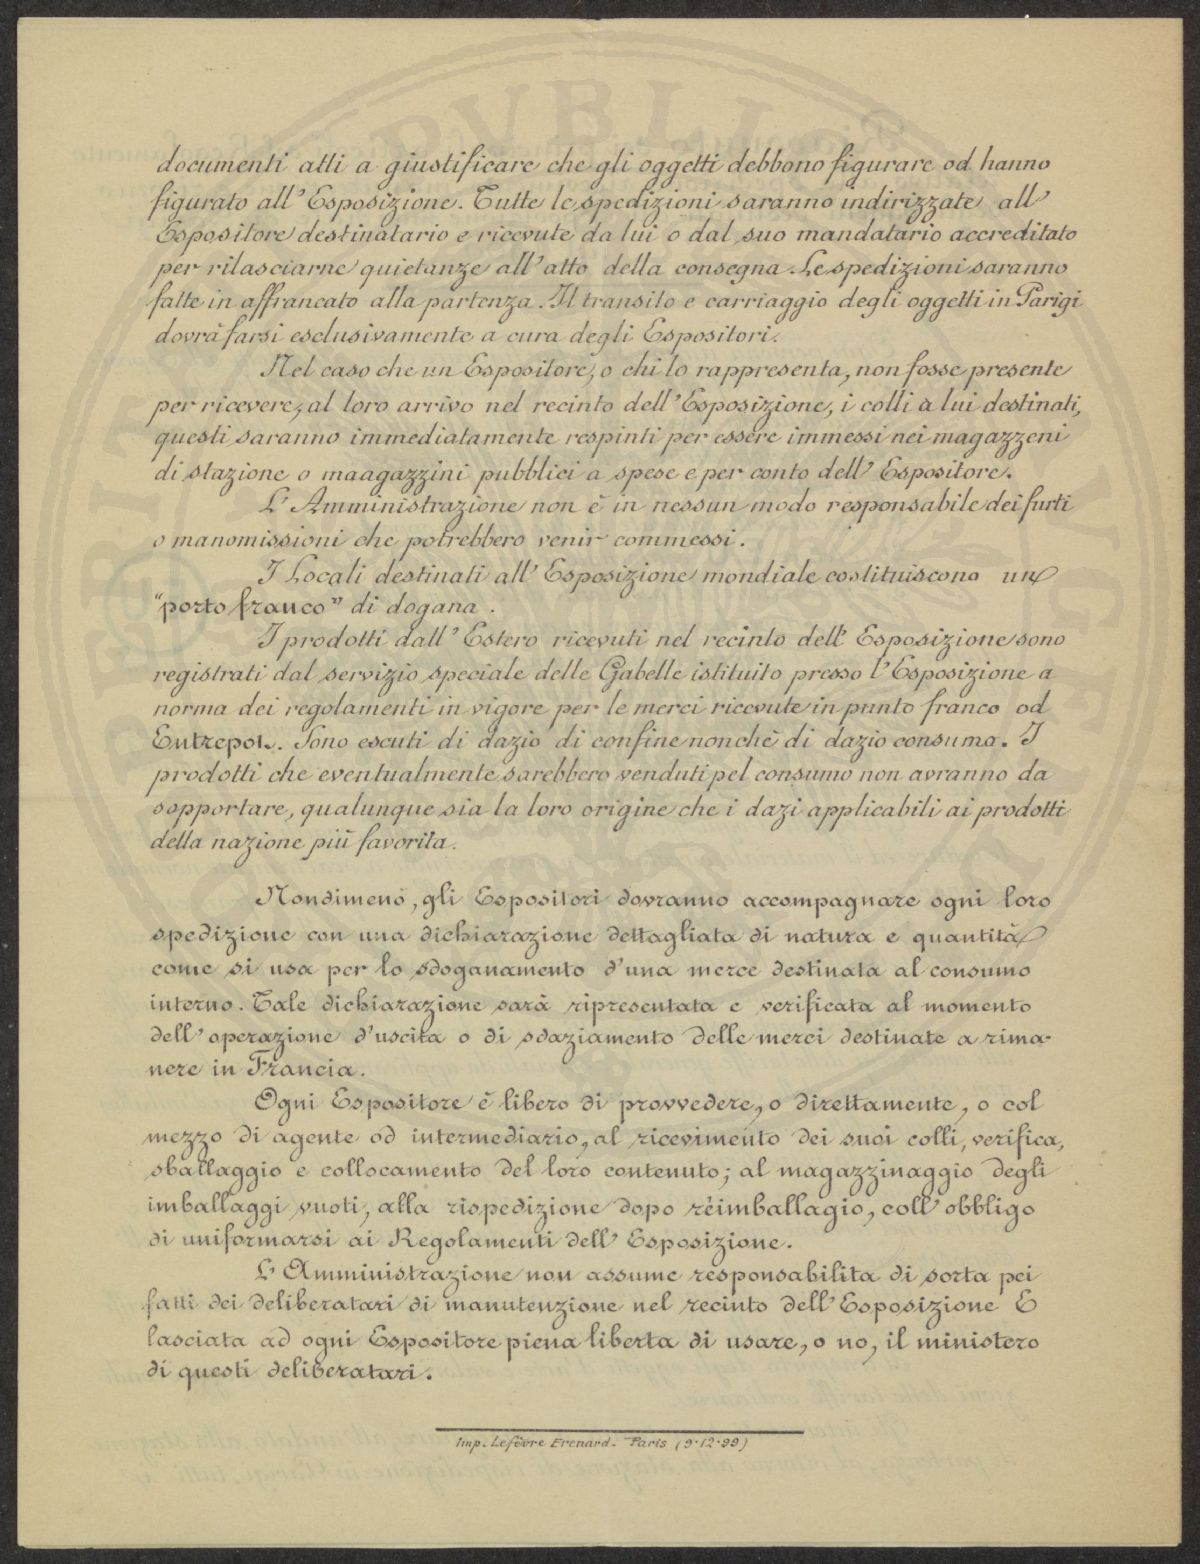 documenti atti a giustificare che gli oggetti debbono figurare od hanno
figurato all' Esposizione. Tutte le spedizioni saranno indirizzate all'
Espositore destinatario e ricevute da lui o dal suo mandatario accreditato
per rilasciarne quietanze all' atto della consegna. Le spedizioni saranno
fatte in affrancato alla partenza. Il transito e carriaggio degli oggetti in Parigi
dovrà farsi esclusivamente a cura degli Espositori.
Nel caso che un Espositore, o chi lo rappresenta, non fosse presente
per ricevere, al loro arrivo nel recinto dell' Esposizione, i colli à lui destinati,
questi saranno immediatamente respinti per essere immessi nei magazzeni
di stazione o maagazzini pubblici a spese e per conto dell' Espositore.
L' Amministrazione non è in nessun modo responsabile dei furti
o manomissioni che potrebbero venir commessi.
I Locali destinati all' Esposizione mondiale costituiscono un
"porto franco" di dogana.
I prodotti dall' Estero ricevuti nel recinto dell' Esposizione sono
registrati dal servizio speciale delle Gabelle istituito presso l' Esposizione a
norma dei regolamenti in vigore per le merci ricevute in punto franco od
Entrepot. Sono escuti di dazio di confine nonchè di dazio consumo. I
prodotti che eventualmente sarebbero venduti pel consumo non avranno da
sopportare, qualunque sia la loro origine che i dazi applicabili ai prodotti
della nazione più favorita.
Nondimeno, gli Espositori dovranno accompagnare ogni loro
spedizione con una dichiarazione dettagliata di natura e quantità
come si usa per lo sdoganamento d'una merce destinata al consumo
interno. Tale dichiarazione sarà ripresentata e verificata al momento
dell' operazione d'uscita o di sdaziamento delle merci destinate a rima-
nere in Francia.
Ogni Espositore è libero di provvedere, o direttamente, o col
mezzo di agente od intermediario, al ricevimento dei suoi colli, verifica,
sballaggio e collocamento del loro contenuto; al magazzinaggio degli
imballaggi vuoti, alla rispedizione dopo reimballagio, coll' obbligo
di uniformarsi ai Regolamenti dell' Esposizione.
L' Amministrazione non assume responsabilita di sorta pei
fatti dei deliberatari di manutenzione nel recinto dell' Esposizione E
lasciata ad ogni Espositore piena liberta di usare, o no, il ministero
di questi deliberatari.
Imp. Lefèvre Erenard. Paris (9-12-99)